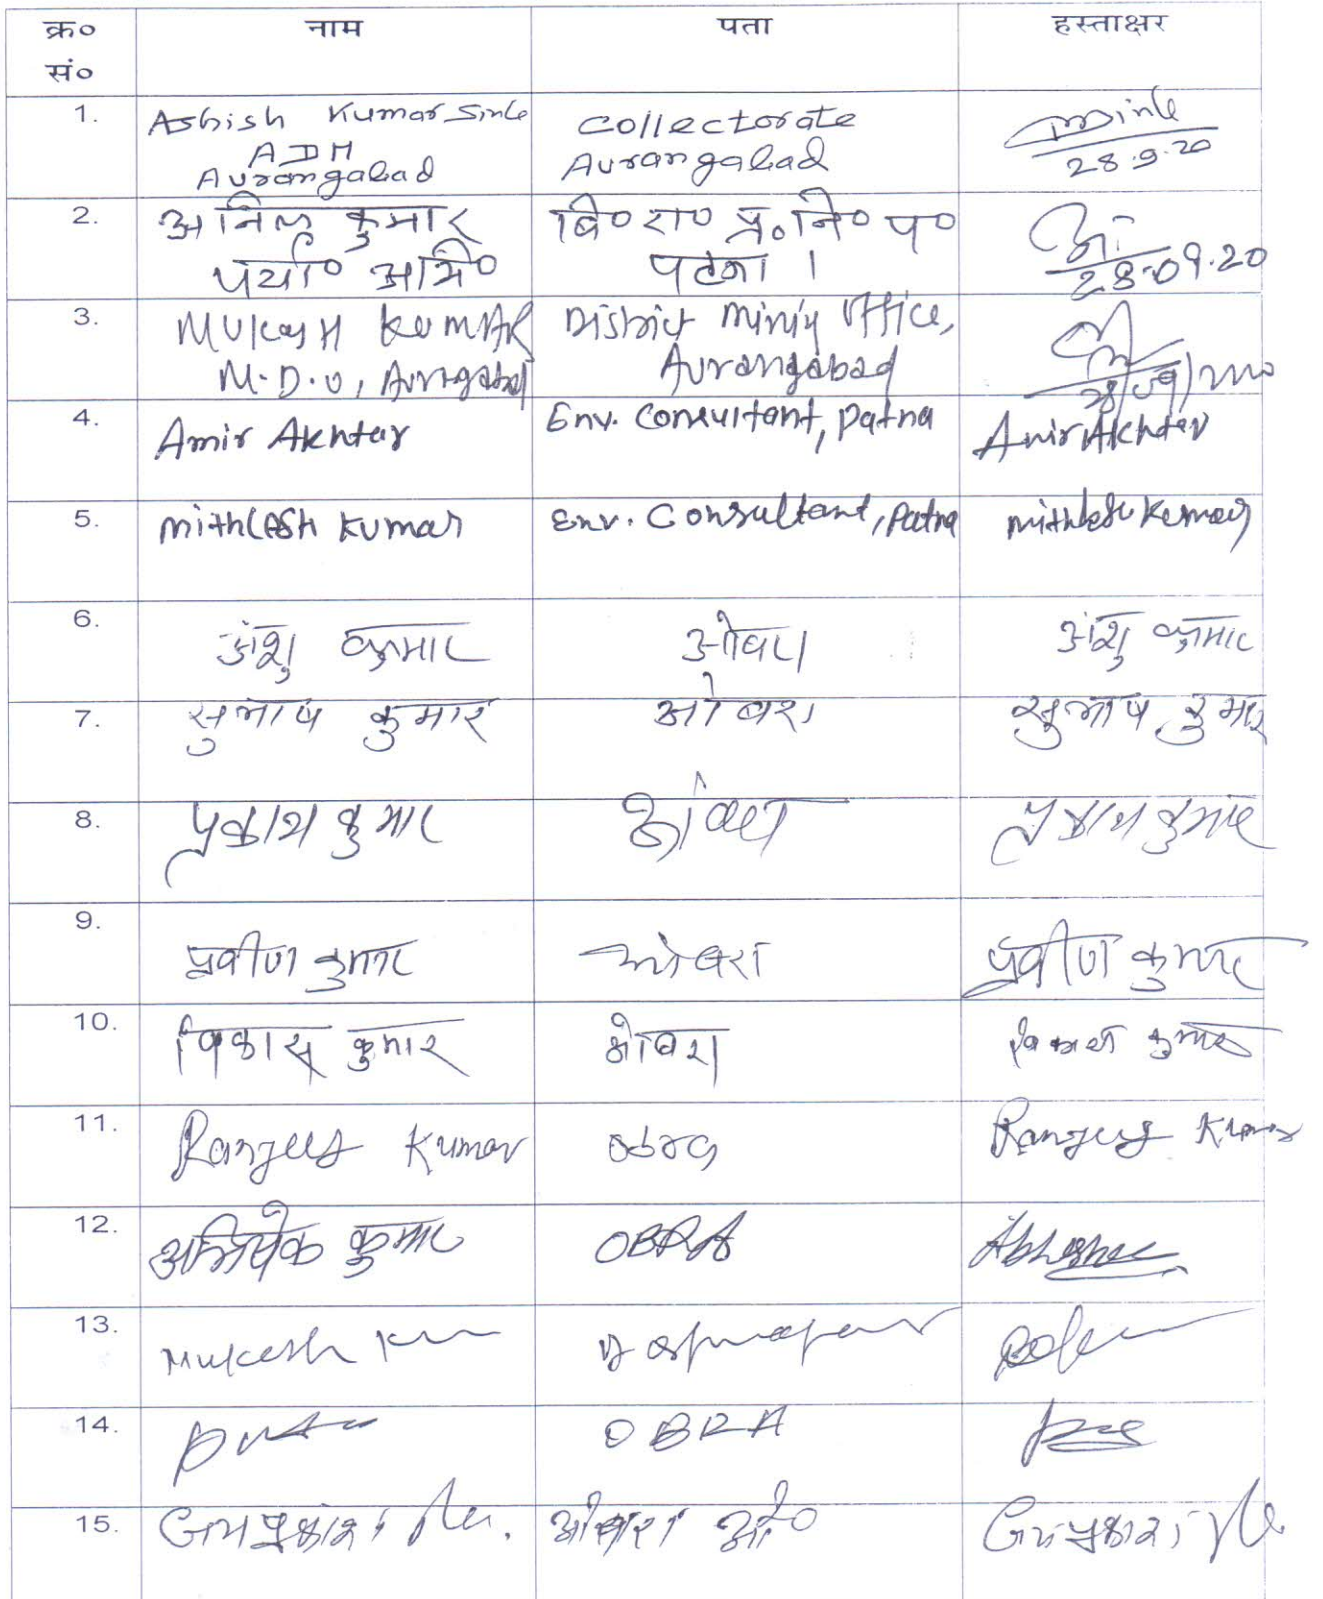 क्र० नाम पता हस्ताक्षर
सं०
1. Ashish Kumar Sinha Collectorate
ADM Aurangabad 28.9.20
Aurangabad
2. अनिल कुमार बि० रा० प्र० नि० प०
पर्या० अभि० पटना । 28.09.20
3. Mukesh Kumar District Mining Office,
M.D.O, Aurangabad Aurangabad
4. Amir Akhtar Env. Consultant, Patna Amir Akhtar
5. Mithlesh Kumar Env. Consultant, Patna Mithlesh Kumar
6. अंशु कुमार ओबरा अंशु कुमार
7. सुभाष कुमार ओबरा सुभाष कुमार
8. प्रकाश कुमार ओबरा प्रकाश कुमार
9. प्रवीण कुमार ओबरा प्रवीण कुमार
10. विकास कुमार ओबरा विकास कुमार
11. Ranjeet Kumar Obra Ranjeet Kumar
12. अभिषेक कुमार OBRA Abhishek
13. Mukesh Kr
14. OBRA
15. ओबरा औ०